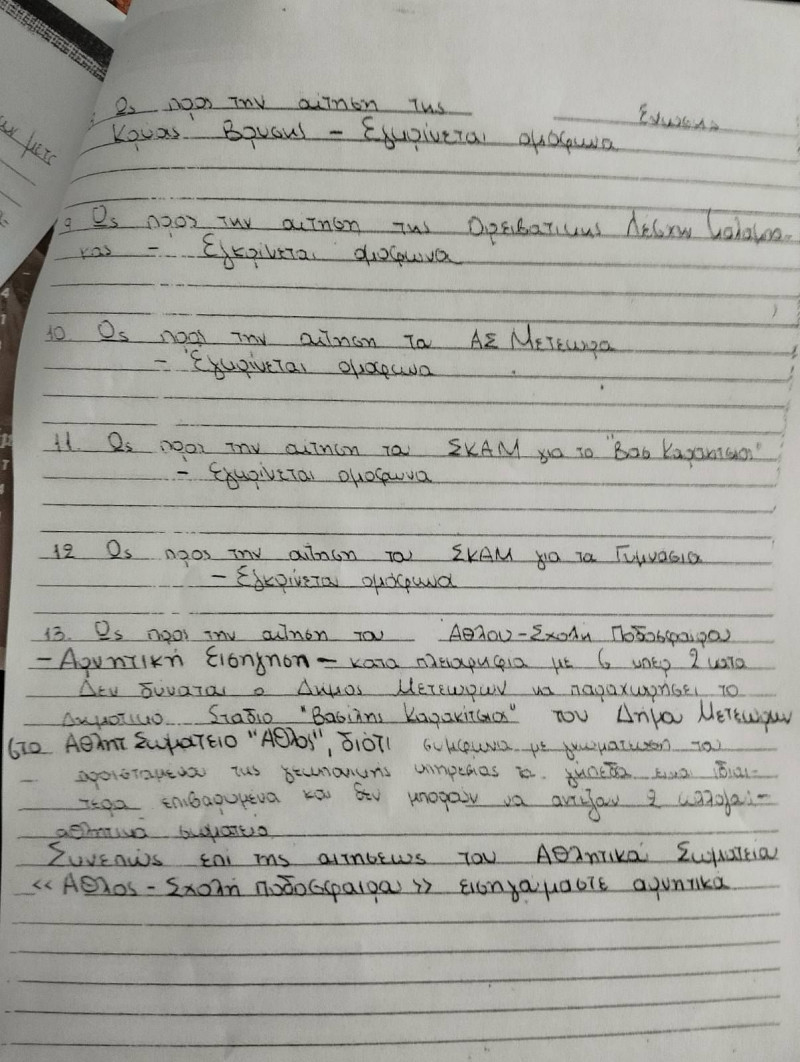 Ως προς την αίτηση της Ενωσης
Κρύας Βρυσης - Εγκρίνεται ομόφωνα
9 Ως προς την αιτηση της Ορειβατικης Λέσχης Καλαμπα-
κας - Εγκρίνεται ομόφωνα
10. Ως προς την αίτηση του ΑΣ Μετεωρα
- Εγκρίνεται ομόφωνα
11. Ως προς την αίτηση του ΣΚΑΜ για το "Βασ Καρακιτσιος"
- Εγκρίνεται ομοφωνα
12 Ως προς την αίτηση του ΣΚΑΜ για τα Γυμνάσια
- Εγκρίνεται ομόφωνα
13. Ως προς την αίτηση του Αθλου - Σχολή Ποδοσφαίρου
- Αρνητική Εισηγηση - κατα πλειοψηφια με 6 υπερ 2 κατα
Δεν δύναται ο Δημος Μετεωρων να παραχωρήσει το
Δημοτικο Σταδιο "Βασίλης Καρακίτσιος" του Δήμου Μετεωρων
στο Αθλητ Σωματειο "Αθλος", διότι συμφωνα με γνωματευση του
προισταμενου της γεωπονικης υπηρεσιας τα γήπεδα ειναι ιδιαι-
τερα επιβαρυμένα και δεν μπορουν να αντεξουν
αθλητικα σωματεια
Συνεπώς επι της αιτησεως του Αθλητικού Σωματείου
<< Αθλος - Σχολή Ποδοσφαιρου >> εισηγούμαστε αρνητικα